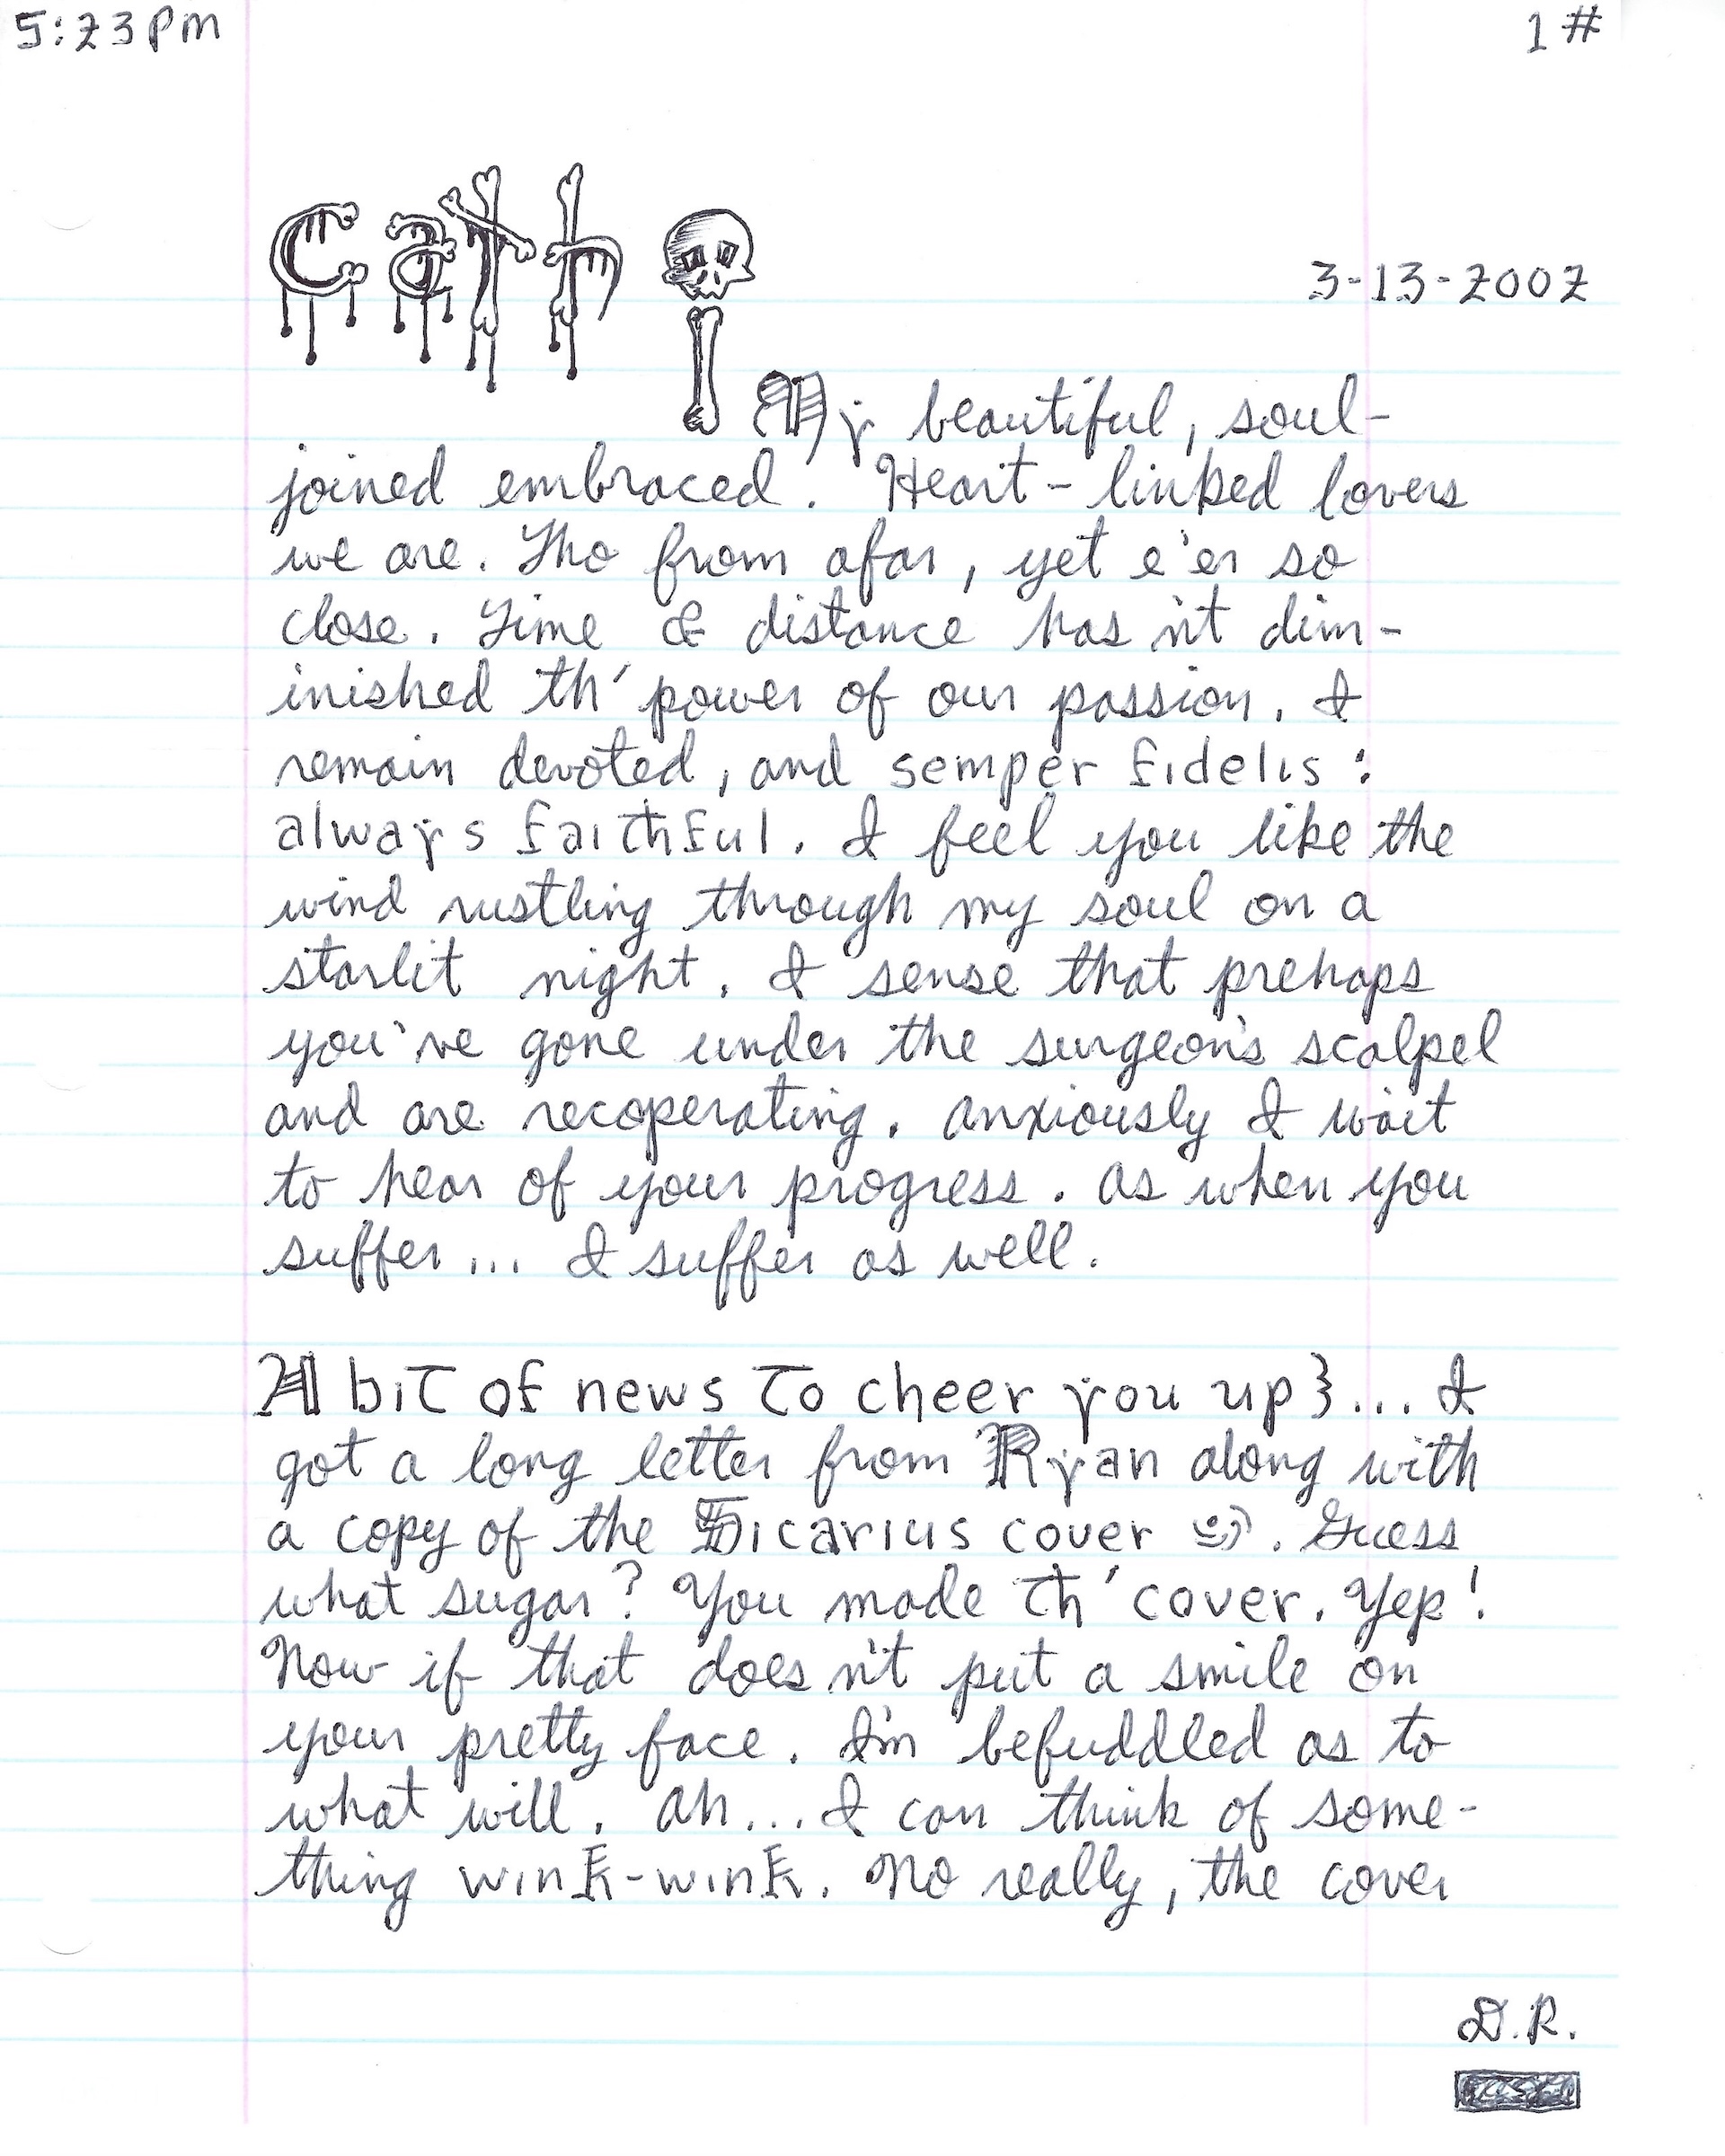 5:23pm 1#
Cath
3-13-2002
My beautiful, soul-
joined embraced. Heart-linked lovers
we are. Tho from afar, yet e'er so
close. Time & distance has n't dim-
inished th' power of our passion. I
remain devoted, and semper fidelis:
always faithful. I feel you like the
wind rustling through my soul on a
starlit night. I sense that prehaps
you've gone under the surgeon's scalpel
and are recoperating. Anxiously I wait
to hear of your progress. As when you
suffer... I suffer as well.
A bit of news to cheer you up}... I
got a long letter from Ryan along with
a copy of the Sicarius cover. Guess
what sugar? You made th' cover. Yep!
Now if that does n't put a smile on
your pretty face. I'm befuddled as to
what will. Ah... I can think of some-
thing wink-wink. No really, the cover
D.R.